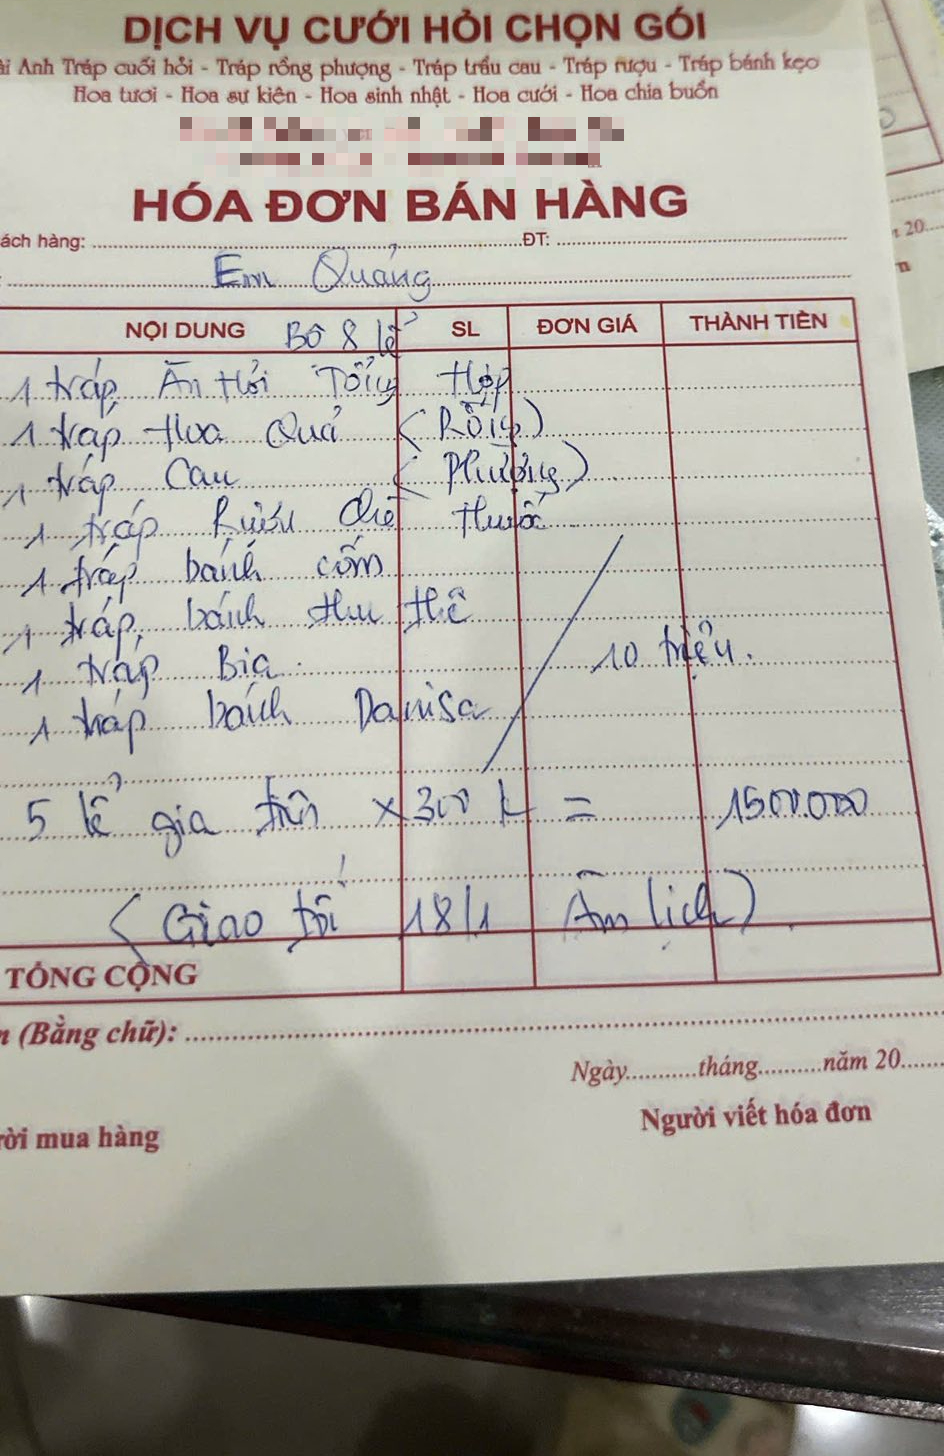 DỊCH VỤ CƯỚI HỎI CHỌN GÓI
Anh Tráp cuối hỏi - Tráp rồng phượng - Tráp trầu cau - Tráp rượu - Tráp bánh kẹo
Hoa tươi - Hoa sự kiện - Hoa sinh nhật - Hoa cưới - Hoa chia buồn
HÓA ĐƠN BÁN HÀNG
ách hàng: ĐT:
Em Quảng
NỘI DUNG Bộ 8 lễ SL ĐƠN GIÁ THÀNH TIỀN
1 tráp Ăn Hỏi Tổng Hợp
1 tráp Hoa Quả (Rồng)
1 tráp Cau (Phượng)
1 tráp Rượu chè thuốc
1 tráp bánh cốm
1 tráp bánh thu thê
1 tráp Bia 10 triệu.
1 tráp bánh Danisa
5 lễ gia tiên x 300 k = 1500.000
(Giao tối 18/1 Âm lịch)
TỔNG CỘNG
n (Bằng chữ):
Ngày tháng năm 20
ười mua hàng Người viết hóa đơn
20
n